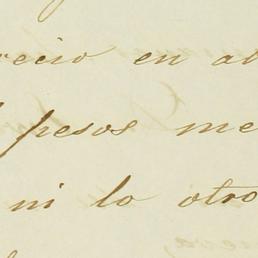 recio en al
pesos me
ni lo otro